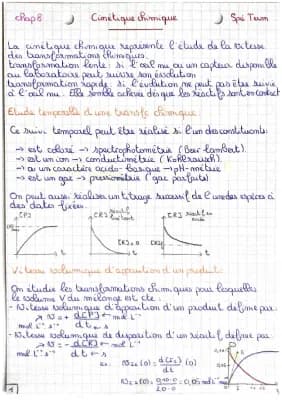 chap 8 Cinétique chimique Spé Term
La cinétique chimique représente l'étude de la vitesse
des transformations chimiques.
transformation lente si l'œil nu ou un capteur disponible
au laboratoire peut suivre son évolution
transformation rapide si l'évolution ne peut pas être suivie
à l'œil nu. Elle semble achevée dès que les réactifs sont en contact
Etude temporelle d'une transfo chimique.
Ce suivi temporel peut être réalisé si l'un des constituants:
→ est coloré → spectrophotométrie (Beer Lambert).
→ est un ion → conductimétrie (Kohlrausch).
→ a un caractère acido-basique → pH-métrie
→ est un gaz → pressiométrie (gaz parfaits)
On peut aussi réaliser un titrage successif de l'une des espèces à
des dates fixées.
[P] [R] réactif limitant [R] réactif en excès
[R]f = 0 [R]f
t t t
Vitesse volumique d'apparition d'un produit.
On étudie les transformations chimiques pour lesquelles
le volume V du mélange est cte.
- Vitesse volumique d'apparition d'un produit définie par:
v = d[P] ← mol L⁻¹
mol L⁻¹ s⁻¹ dt ← s
- Vitesse volumique de disparition d'un réactif définie par
v = - d[R] ← mol L⁻¹
mol L⁻¹ s⁻¹ dt ← s
ex: (0) = d[I₂] (0)
dt
1